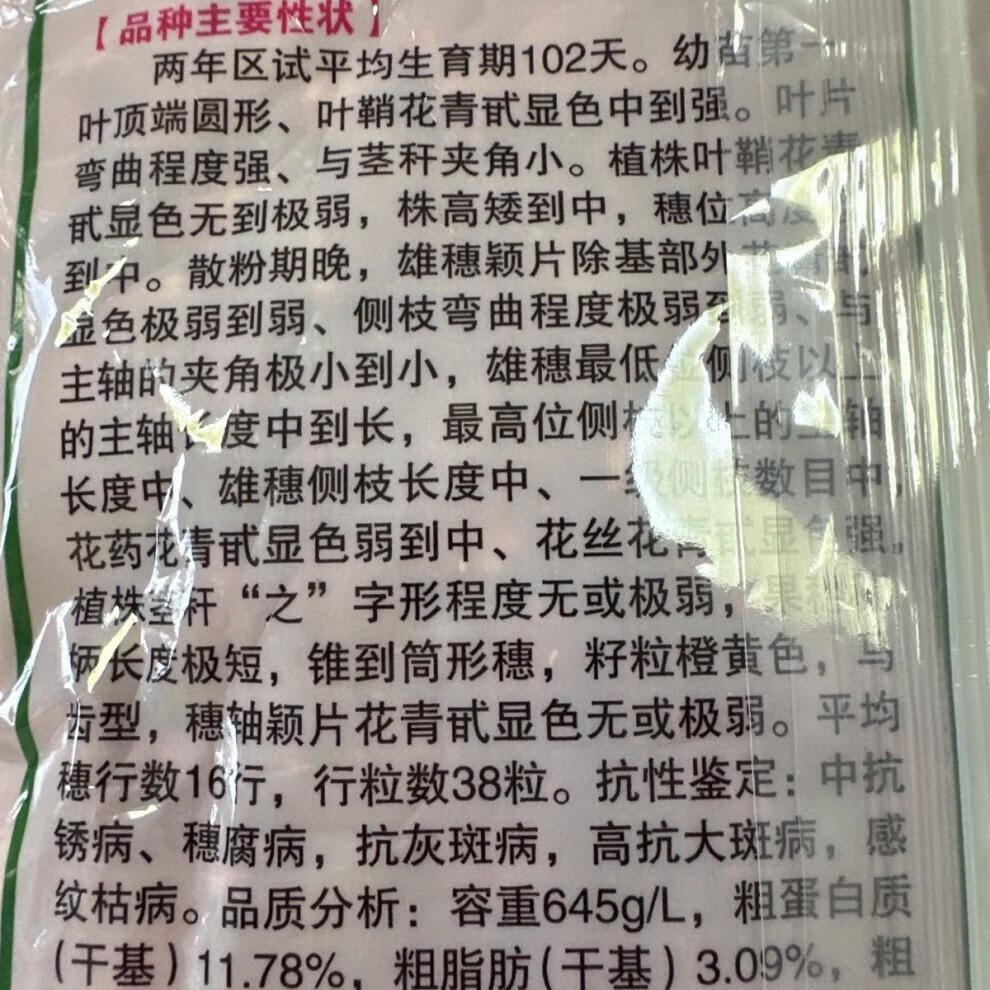 【品种主要性状】
两年区试平均生育期102天。幼苗第一
叶顶端圆形、叶鞘花青甙显色中到强。叶片
弯曲程度强、与茎秆夹角小。植株叶鞘花青
甙显色无到极弱，株高矮到中，穗位高度
到中。散粉期晚，雄穗颖片除基部外花青甙
显色极弱到弱、侧枝弯曲程度极弱到弱、与
主轴的夹角极小到小，雄穗最低位侧枝以上
的主轴长度中到长，最高位侧枝以上的主轴
长度中、雄穗侧枝长度中、一级侧枝数目中，
花药花青甙显色弱到中、花丝花青甙显色强。
植株茎秆“之”字形程度无或极弱，果穗
柄长度极短，锥到筒形穗，籽粒橙黄色，马
齿型，穗轴颖片花青甙显色无或极弱。平均
穗行数16行，行粒数38粒。抗性鉴定：中抗
锈病、穗腐病，抗灰斑病，高抗大斑病，感
纹枯病。品质分析：容重645g/L，粗蛋白质
(干基)11.78%，粗脂肪(干基)3.09%，粗